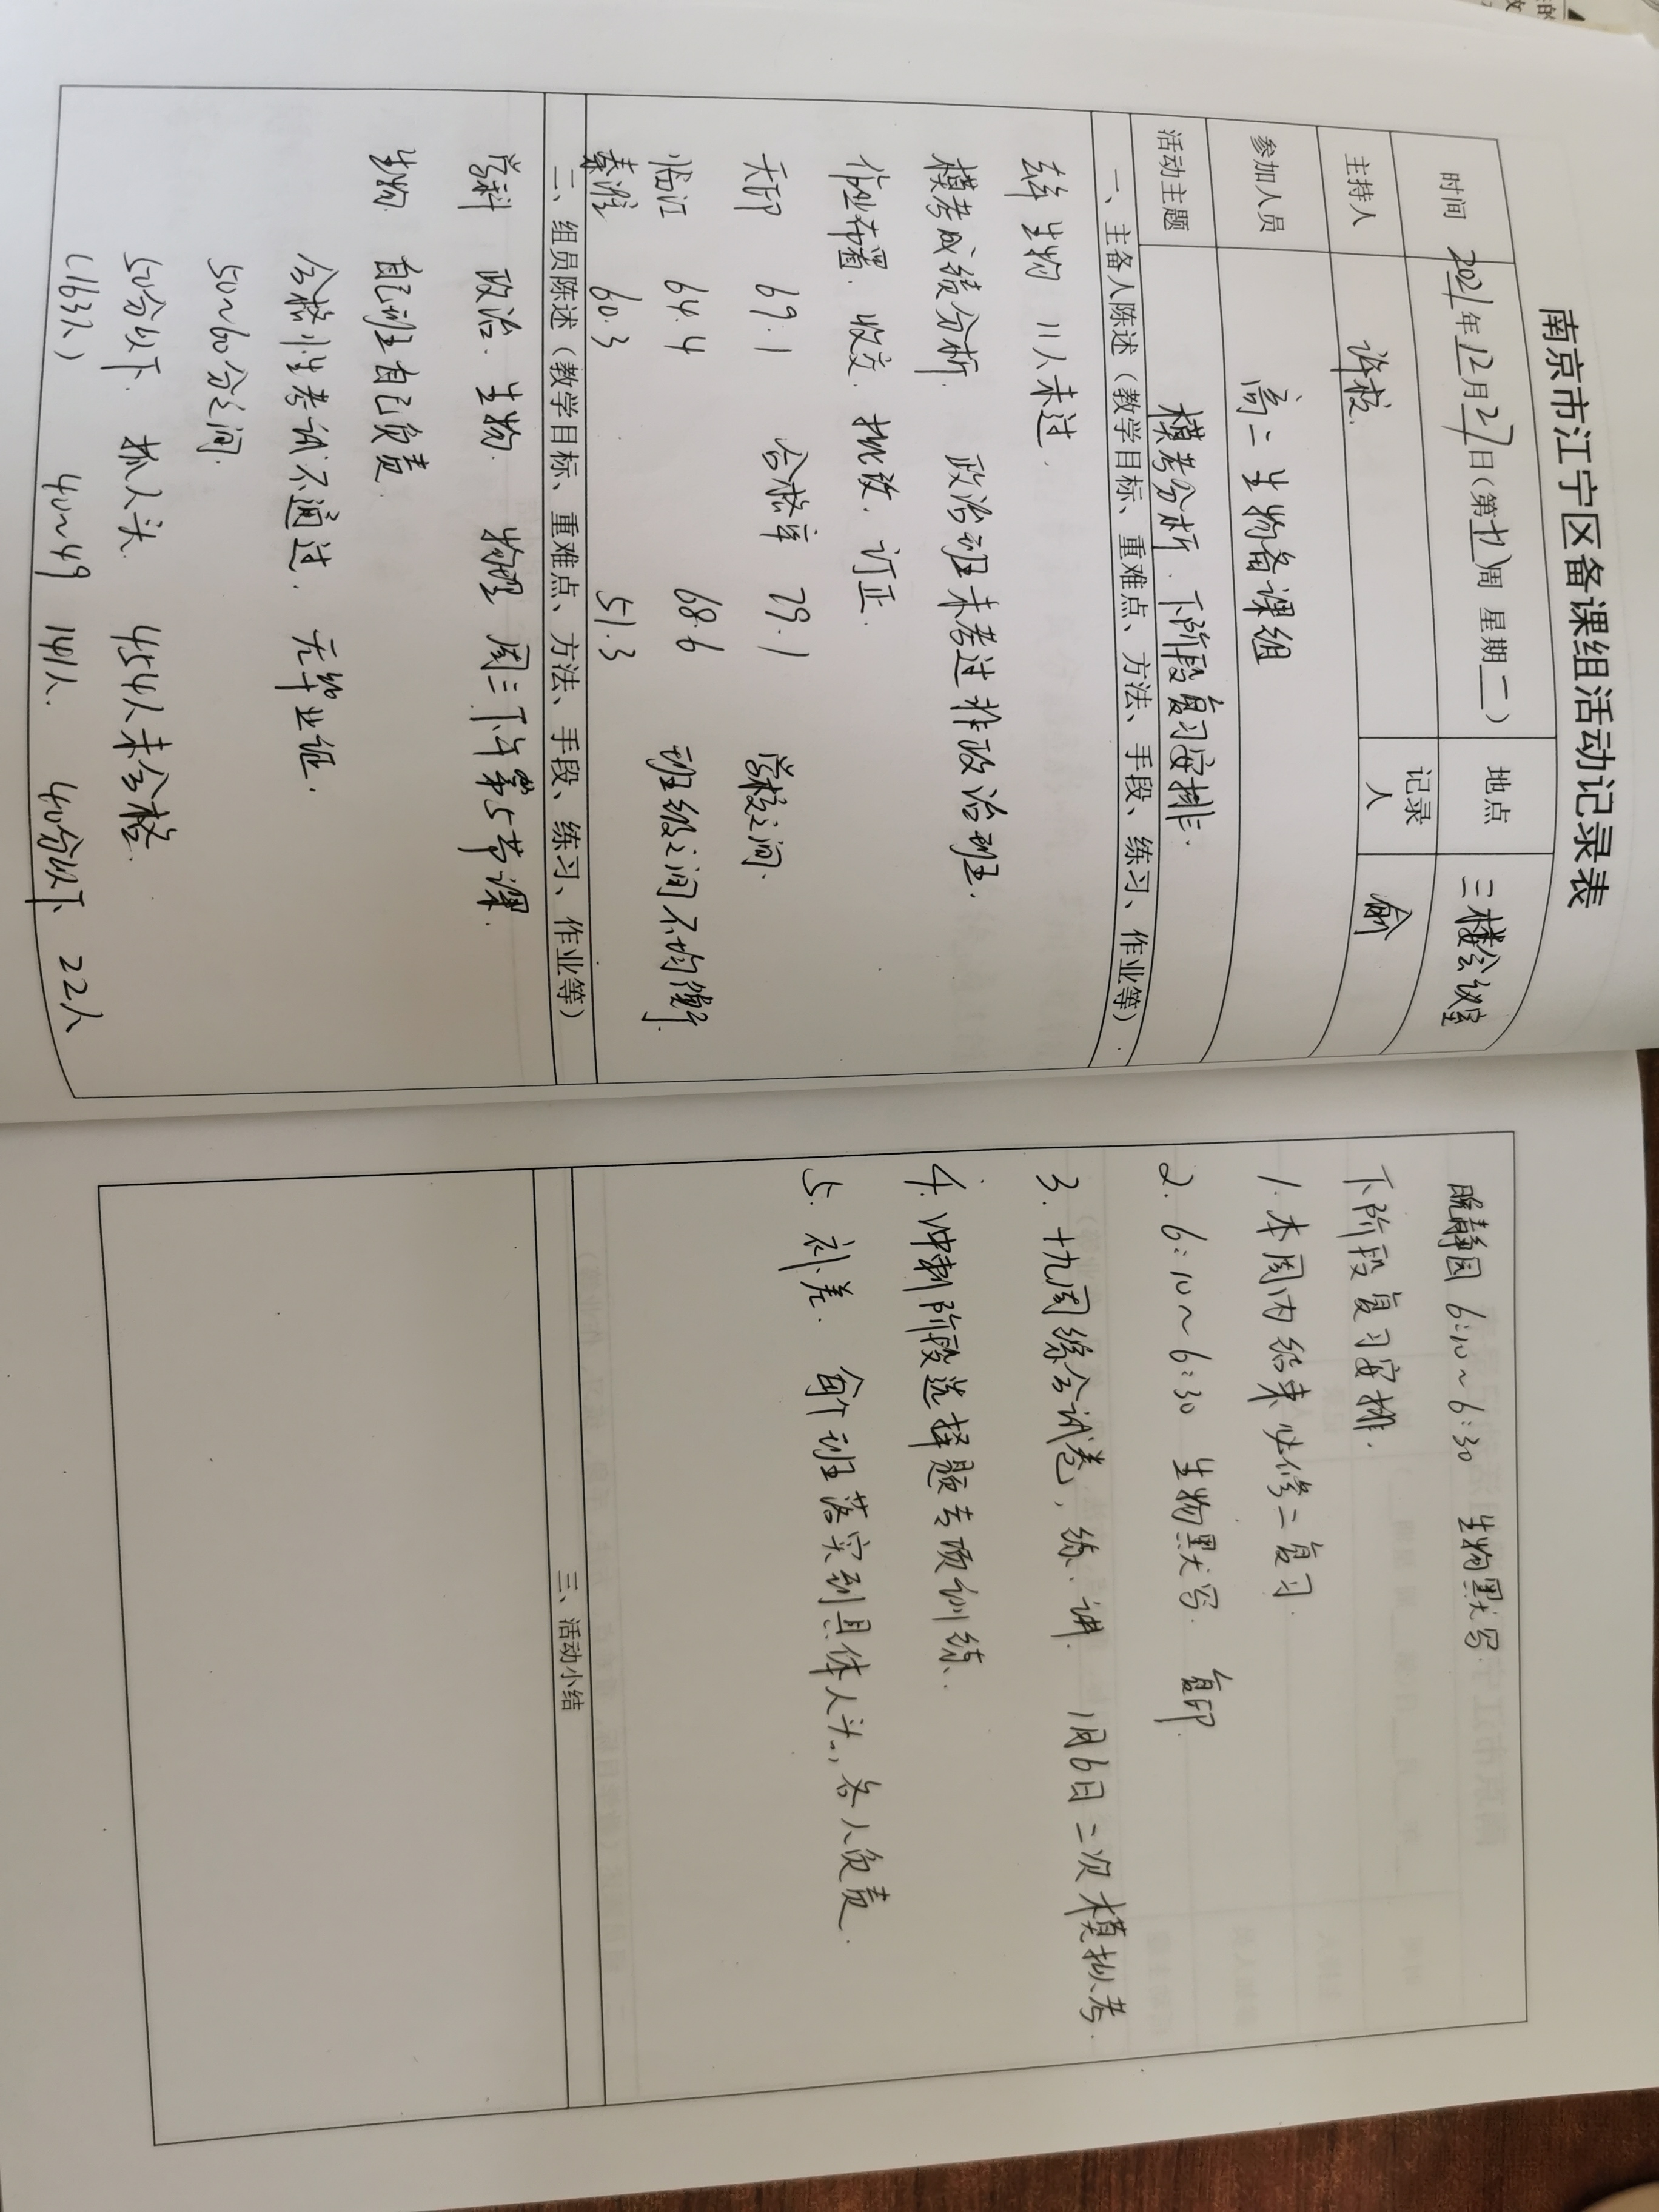 南京市江宁区备课组活动记录表
时间 2021年12月27日(第十八周 星期二) 地点 三楼会议室
主持人 许校 记录人 俞
参加人员 高二生物备课组
活动主题 模考分析. 下阶段复习安排.
一、主备人陈述(教学目标、重难点、方法、手段、练习、作业等)
去年 生物 11人未过.
模考成绩分析. 政治班未考过非政治班.
作业布置. 收交. 批改. 订正.
天印 69.1 合格率 79.1 学校之间.
临江 64.4 68.6 班级之间不均衡.
秦淮 60.3 51.3
二、组员陈述(教学目标、重难点、方法、手段、练习、作业等)
学科 政治. 生物. 物理 周三下午第5节课.
生物. 自己班自己负责.
合格性考试不通过. 无毕业证.
50~60分之间.
50分以下. 抓人头. 454人未合格.
(163人) 40~49 141人. 40分以下 22人
晚静园 6:10~6:30 生物默写.
下阶段复习安排.
1.本周内结束必修二复习.
2. 6:10~6:30 生物默写. 复印.
3. 十九周综合试卷, 练.讲. 1月6日二次模拟考.
4. 冲刺阶段选择题专项训练.
5. 补差. 每个班落实到具体人头, 各人负责.
三、活动小结